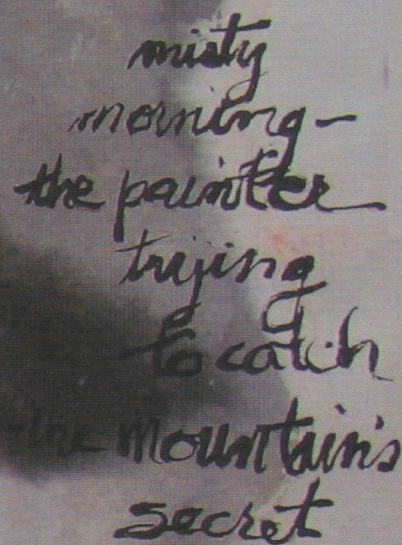 misty
morning–
the painter
trying
to catch
the mountain's
secret